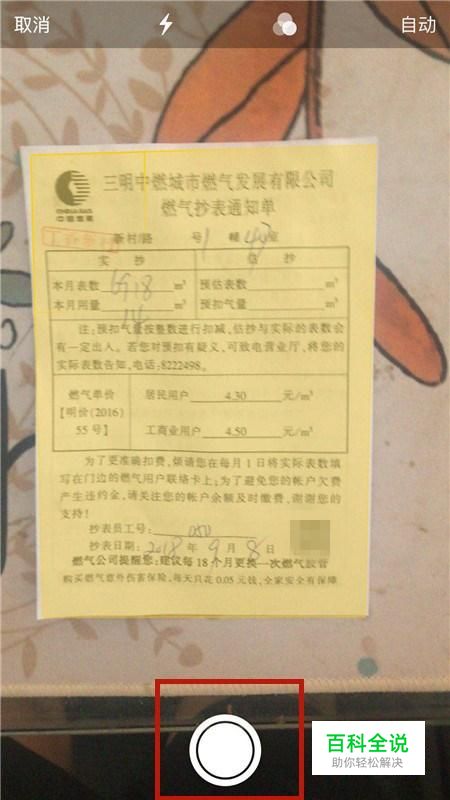 取消
自动
三明中燃城市燃气发展有限公司
燃气抄表通知单
中国燃气
新村/路 号1 幢 室
实 抄 估 抄
本月表数 m³ 预估表数 m³
本月用量 14 m³ 预扣气量 m³
注:预扣气量按整数进行扣减,估抄与实际的表数会
有一定出入。若您对预扣有疑义,可致电营业厅,将您的
实际表数告知,电话:8222498。
燃气单价 居民用户 4.30 元/m³
【明价(2016)
55号】 工商业用户 4.50 元/m³
为了更准确扣费,烦请您在每月1日将实际表数填
写在门边的燃气用户联络卡上;为了避免您的帐户欠费
产生违约金,请关注您的帐户余额及时缴费,谢谢您的
支持!
抄表员工号: 050
抄表日期: 2018 年 9 月 8 日
燃气公司提醒您:建议每18个月更换一次燃气胶管
购买燃气意外伤害保险,每天只花0.05元钱,全家安全有保障
百科全说
助你轻松解决